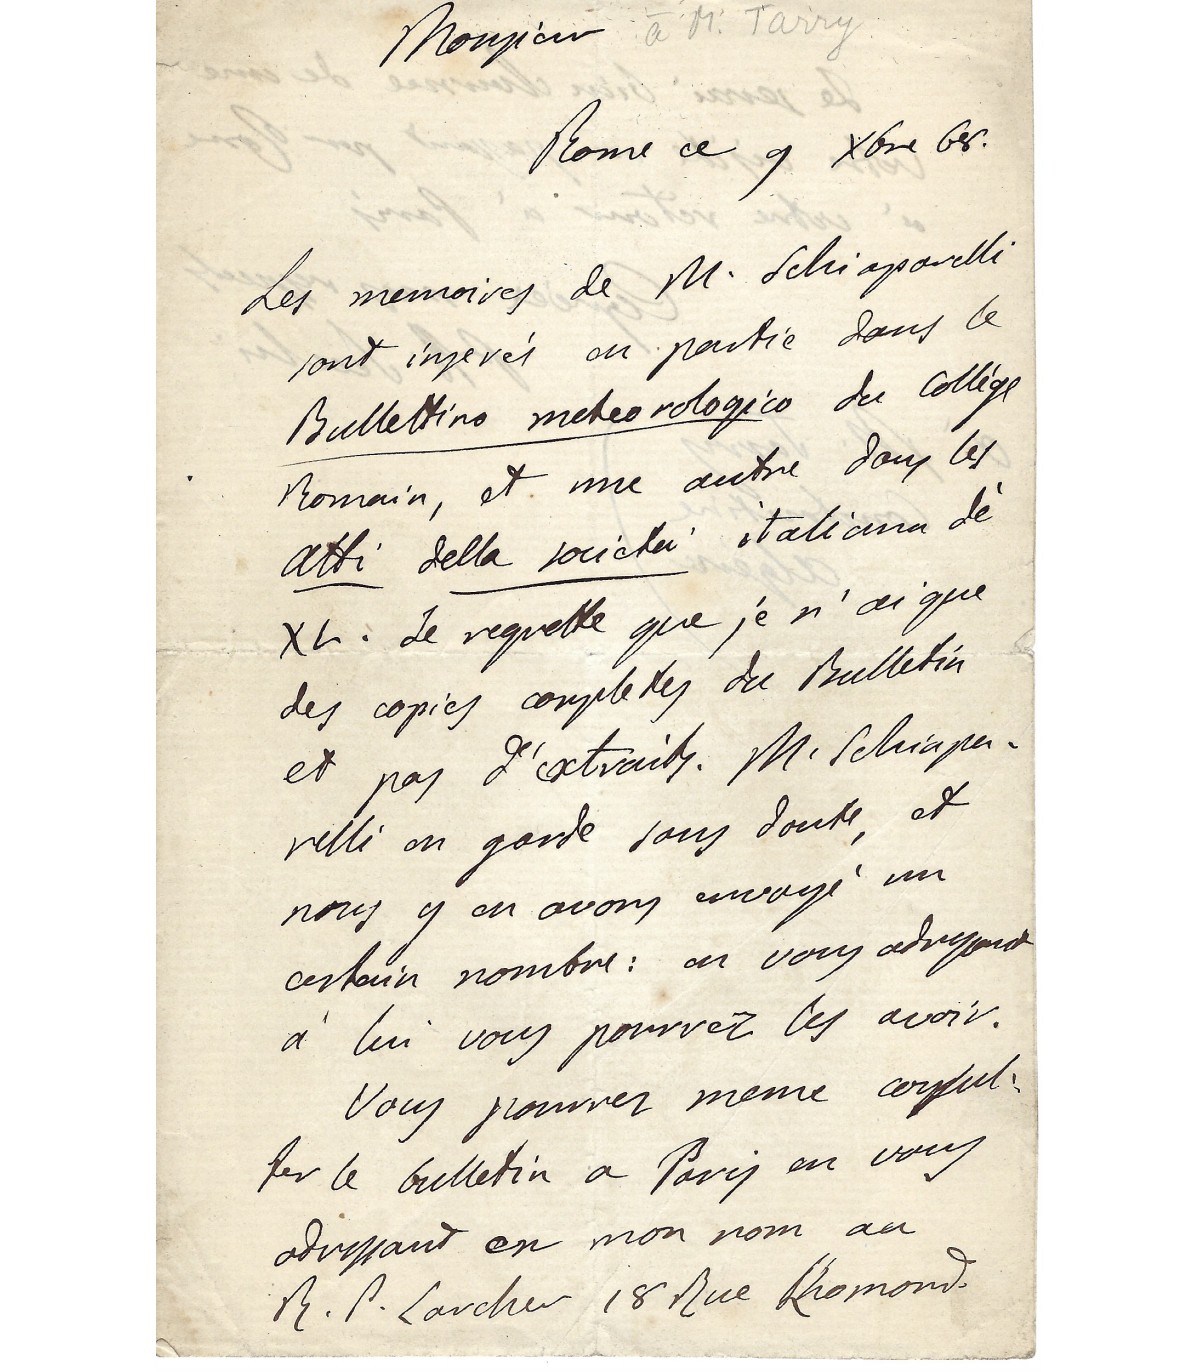 Monsieur à M. Tarry
Rome ce 9 Xbre 68.
Les memoires de M. Schiaparelli
sont inserés en partie dans le
Bullettino meteorologico du Collége
Romain, et une autre dans les
Atti della società italiana de
XL. Je regrette que je n'ai que
des copies completes du Bulletin
et pas d'extraits. M. Schiapa-
relli en garde sans doute, et
nous y en avons envoyé un
certain nombre: en vous adressant
à lui vous pourrez les avoir.
Vous pourrez meme consul-
ter le bulletin a Paris en vous
adressant en mon nom au
R. P. Larcher 18 Rue Lhomond.